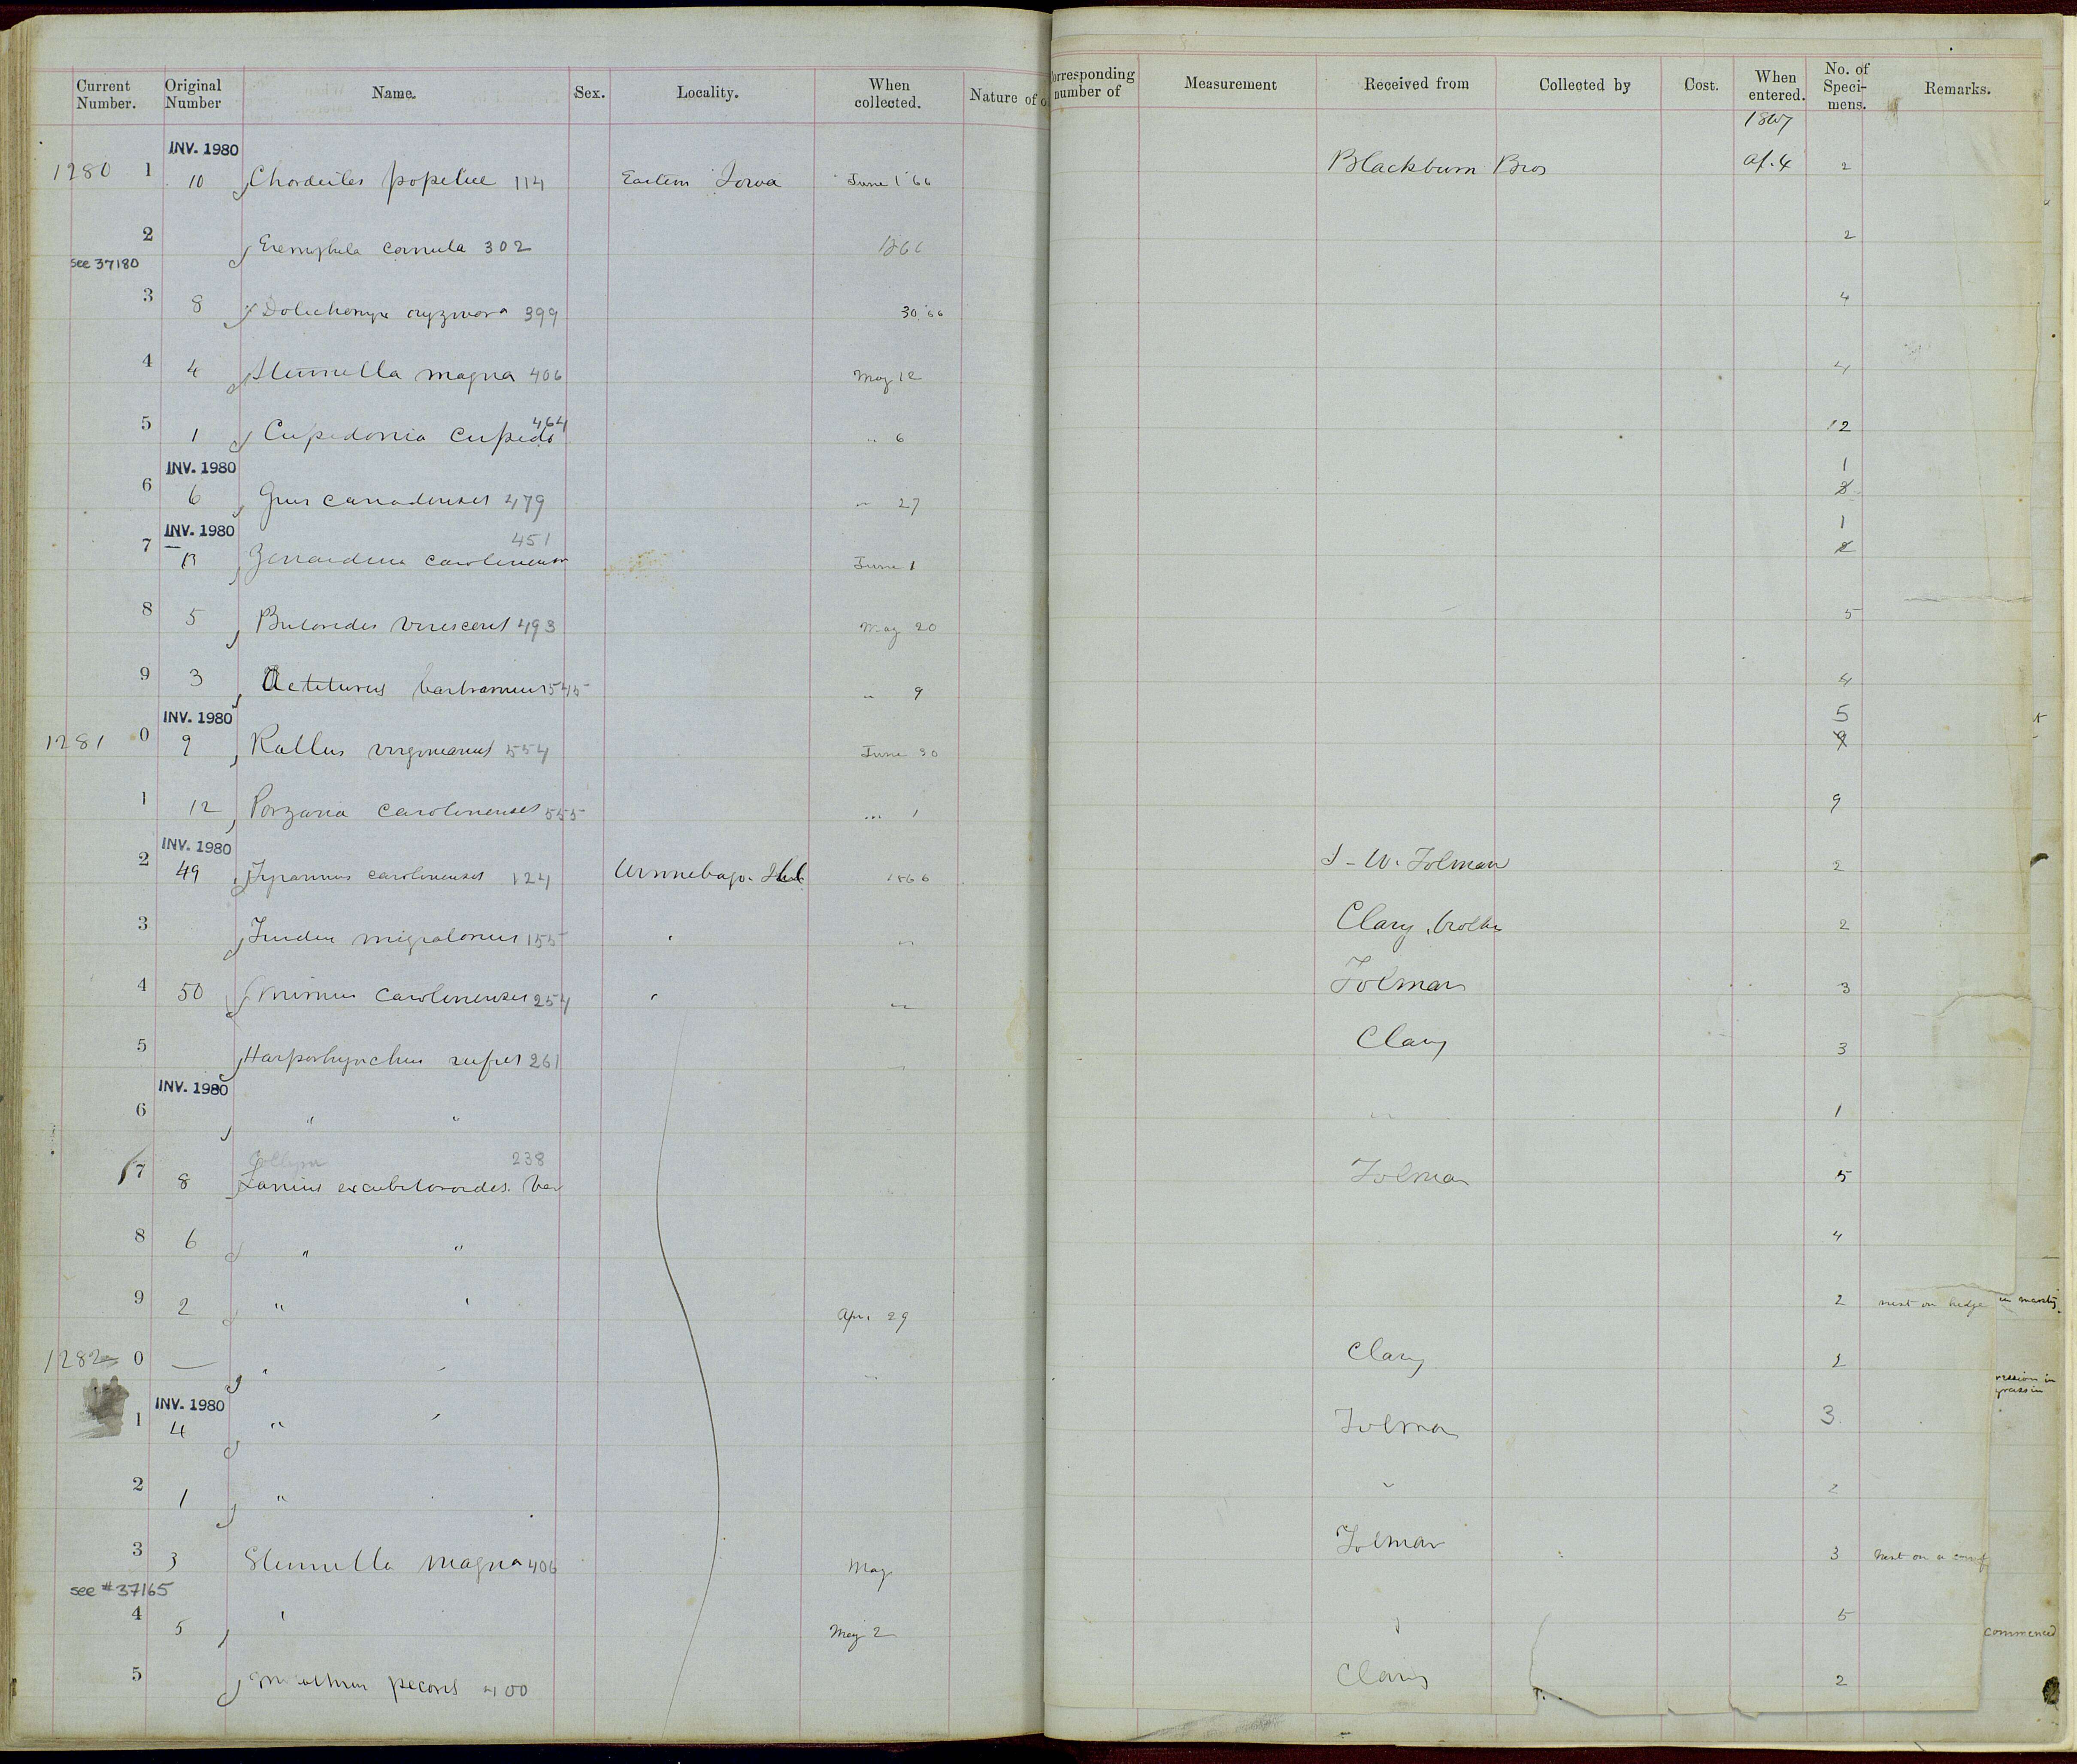 Current Number. Original Number Name. Sex. Locality. When collected. Nature of o
orresponding number of Measurement Received from Collected by Cost. When entered. No. of Speci- mens. Remarks.
1867
INV. 1980
1280 1 10 Chordeiles popetue 114 Eastern Iowa June 1 '66 Blackburn Bros Ap. 4 2
2 Eremophila cornuta 302 1866 2
see 37180
3 8 Dolichonyx oryzivora 399 30 '66 4
4 4 Sturnella magna 406 May 12 4
5 1 Cupidonia Cupido 464 " 6 12
INV. 1980
6 6 Grus canadensis 479 " 27 1 8
INV. 1980
7 13 Zenaidura carolinensis 451 June 1 1 2
8 5 Butorides virescens 493 May 20 5
9 3 Actiturus bartramius 545 " 9 4
INV. 1980
1281 0 9 Rallus virginianus 554 June 30 5 9
1 12 Porzana carolinensis 555 " 1 9
INV. 1980
2 49 Tyrannus carolinensis 124 Winnebago. Ill 1866 J. W. Tolman 2
3 Turdus migratorius 155 ' " Clary, brother 2
4 50 Mimus carolinensis 254 ' " Tolman 3
5 Harporhynchus rufus 261 " Clary 3
INV. 1980
6 " " " 1
7 8 Collyrio 238
Lanius excubitoroides. Var Tolman 5
8 6 " " 4
9 2 " ' Apr. 29 2 nest on hedge in marshy
1282 0 — " ' " Clary 2
ression in
grass in
INV. 1980
1 4 " ' Tolman 3
2 1 " ' " 2
3 3 Sturnella magna 406 May Tolman 3 Nest on a
see #37165
4 5 ' May 2 5
commenced
5 Molothrus pecoris 400 Clary 2